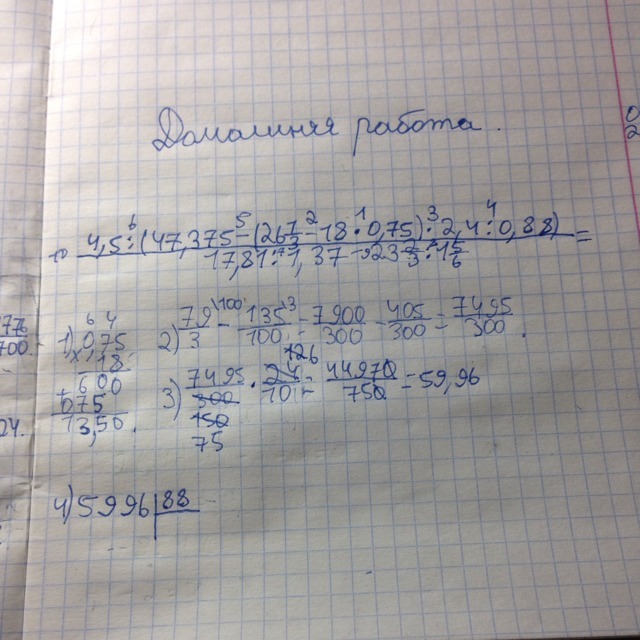 Домашняя работа.
6 5 2 1 3 4
4,5:(47,375-(26 7/-18·0,75)·2,4:0,88)
17,81:1,37-23 2/3:1 5/6 =
1) 0,75
18
600
075
13,50.
2) 79/3 \100 - 135/100 \3 = 7900/300 - 405/300 = 7495/300.
3) 7495/300 · 24/10 = 44970/750 = 59,96
150
75
126
4) 5996 88